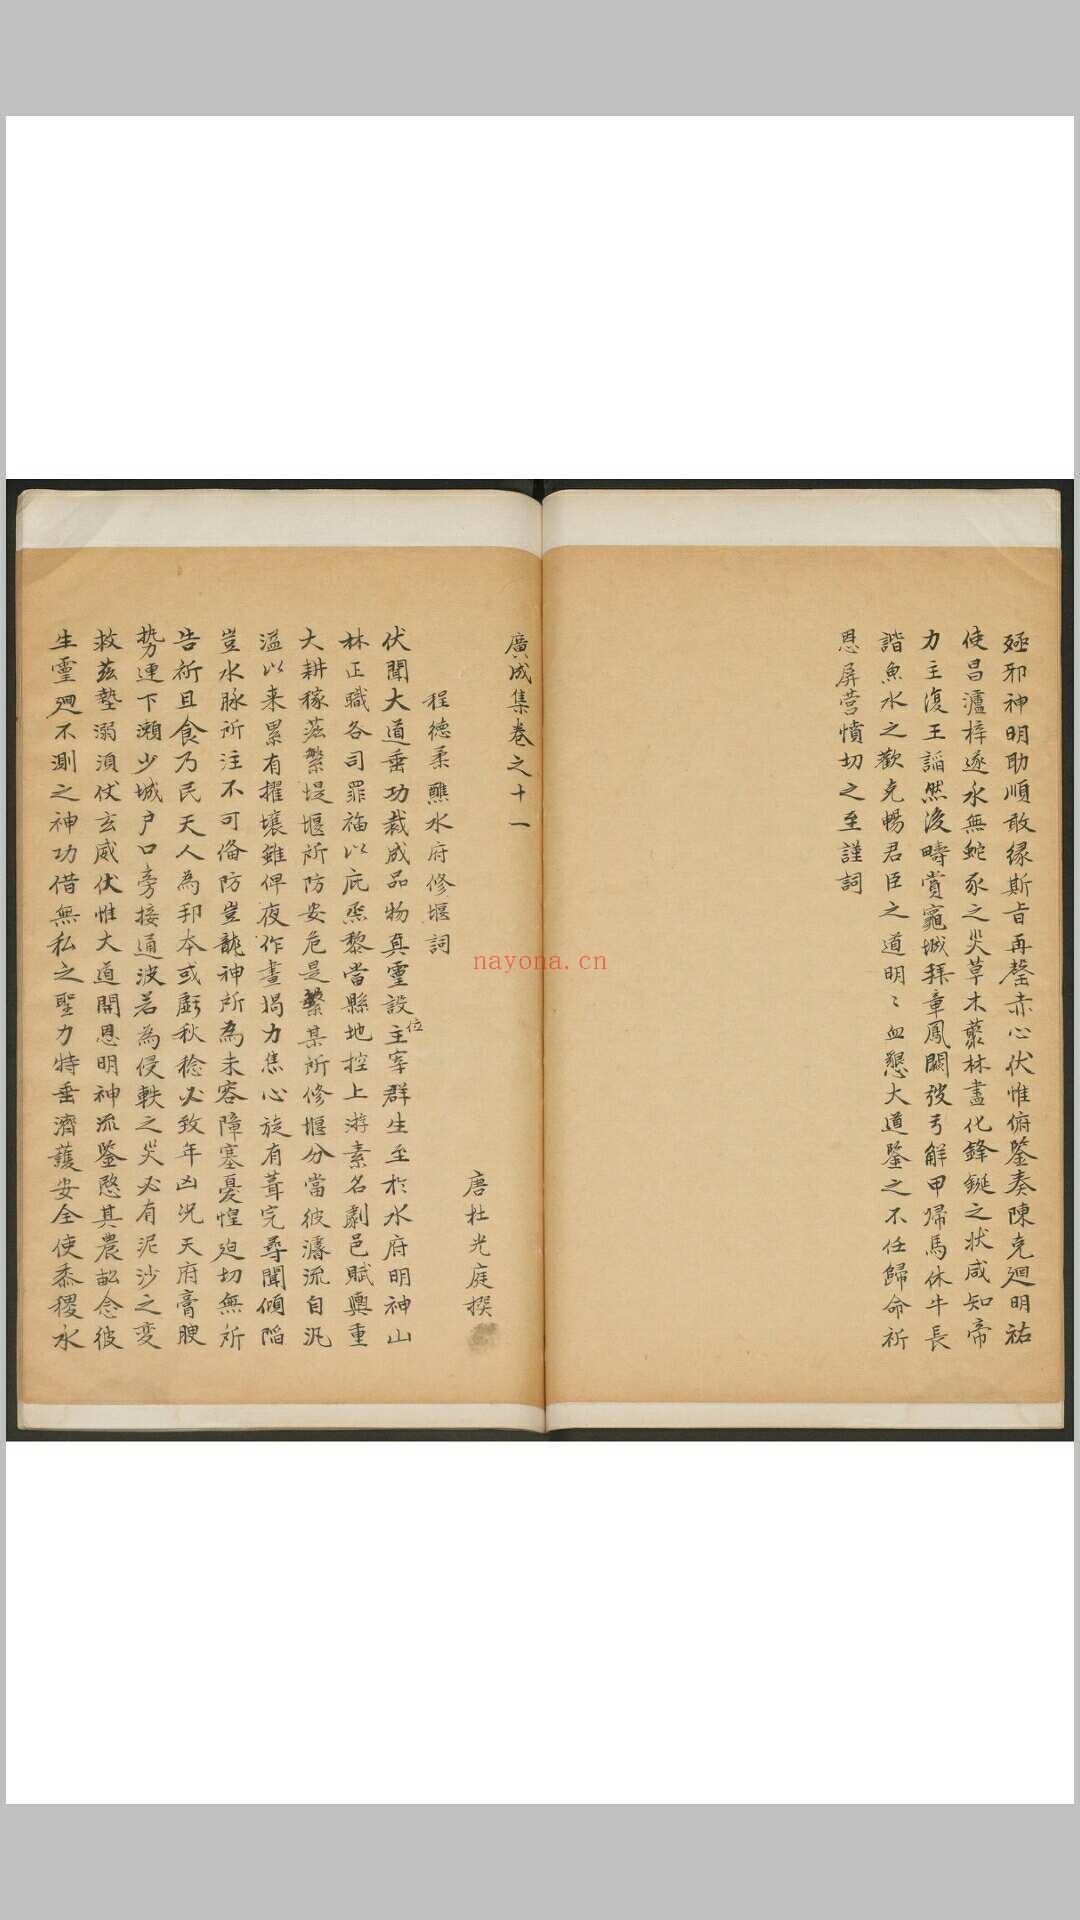 殛邪神明助順敢緣斯旨再罄赤心伏惟俯鑒奏陳克廻明祐
使昌瀘梓遂永無蛇豕之災草木藂林盡化鋒鋋之狀咸知帝
力主復王謡然後疇賞龜城拜章鳳闕弢弓解甲歸馬休牛長
諧魚水之歡克暢君臣之道明〻血懇大道鑒之不任歸命祈
恩屏营憤切之至謹詞
廣成集卷之十一
唐杜光庭撰
程德柔醮水府修堰詞
伏聞大道垂功裁成品物真靈設位主宰群生至於水府明神山
林正職各司罪福以庇烝黎當縣地控上游素名劇邑賦輿重
大耕稼寔繁堤堰所防安危是繫某所修堰分當彼濬流自汎
溢以来累有摧壞雖俾夜作晝揭力焦心旋有葺完尋聞傾陷
豈水脉所注不可俻防豈龍神所為未容障塞憂惶廹切無所
告祈且食乃民天人為邦本或虧秋稔必致年凶况天府膏腴
勢連下瀨少城户口旁接通波若為侵軼之災必有泥沙之变
救茲墊溺湏仗玄威伏惟大道開恩明神流鑒愍其農畝念彼
生靈廻不測之神功借無私之聖力特垂濟護安全使黍稷水
nayona.cn